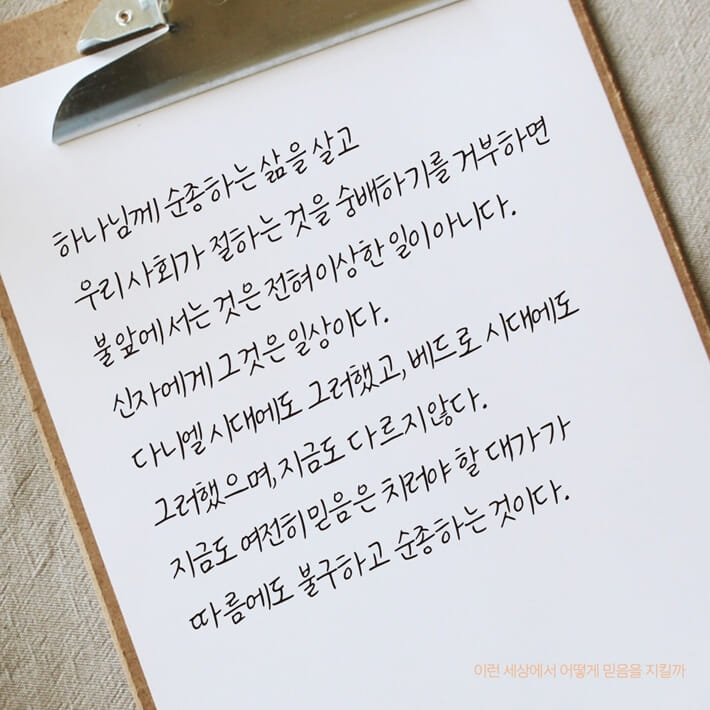 하나님께 순종하는 삶을 살고
우리 사회가 절하는 것을 숭배하기를 거부하면
불 앞에 서는 것은 전혀 이상한 일이 아니다.
신자에게 그것은 일상이다.
다니엘 시대에도 그러했고, 베드로 시대에도
그러했으며, 지금도 다르지 않다.
지금도 여전히 믿음은 치러야 할 대가가
따름에도 불구하고 순종하는 것이다.
이런 세상에서 어떻게 믿음을 지킬까